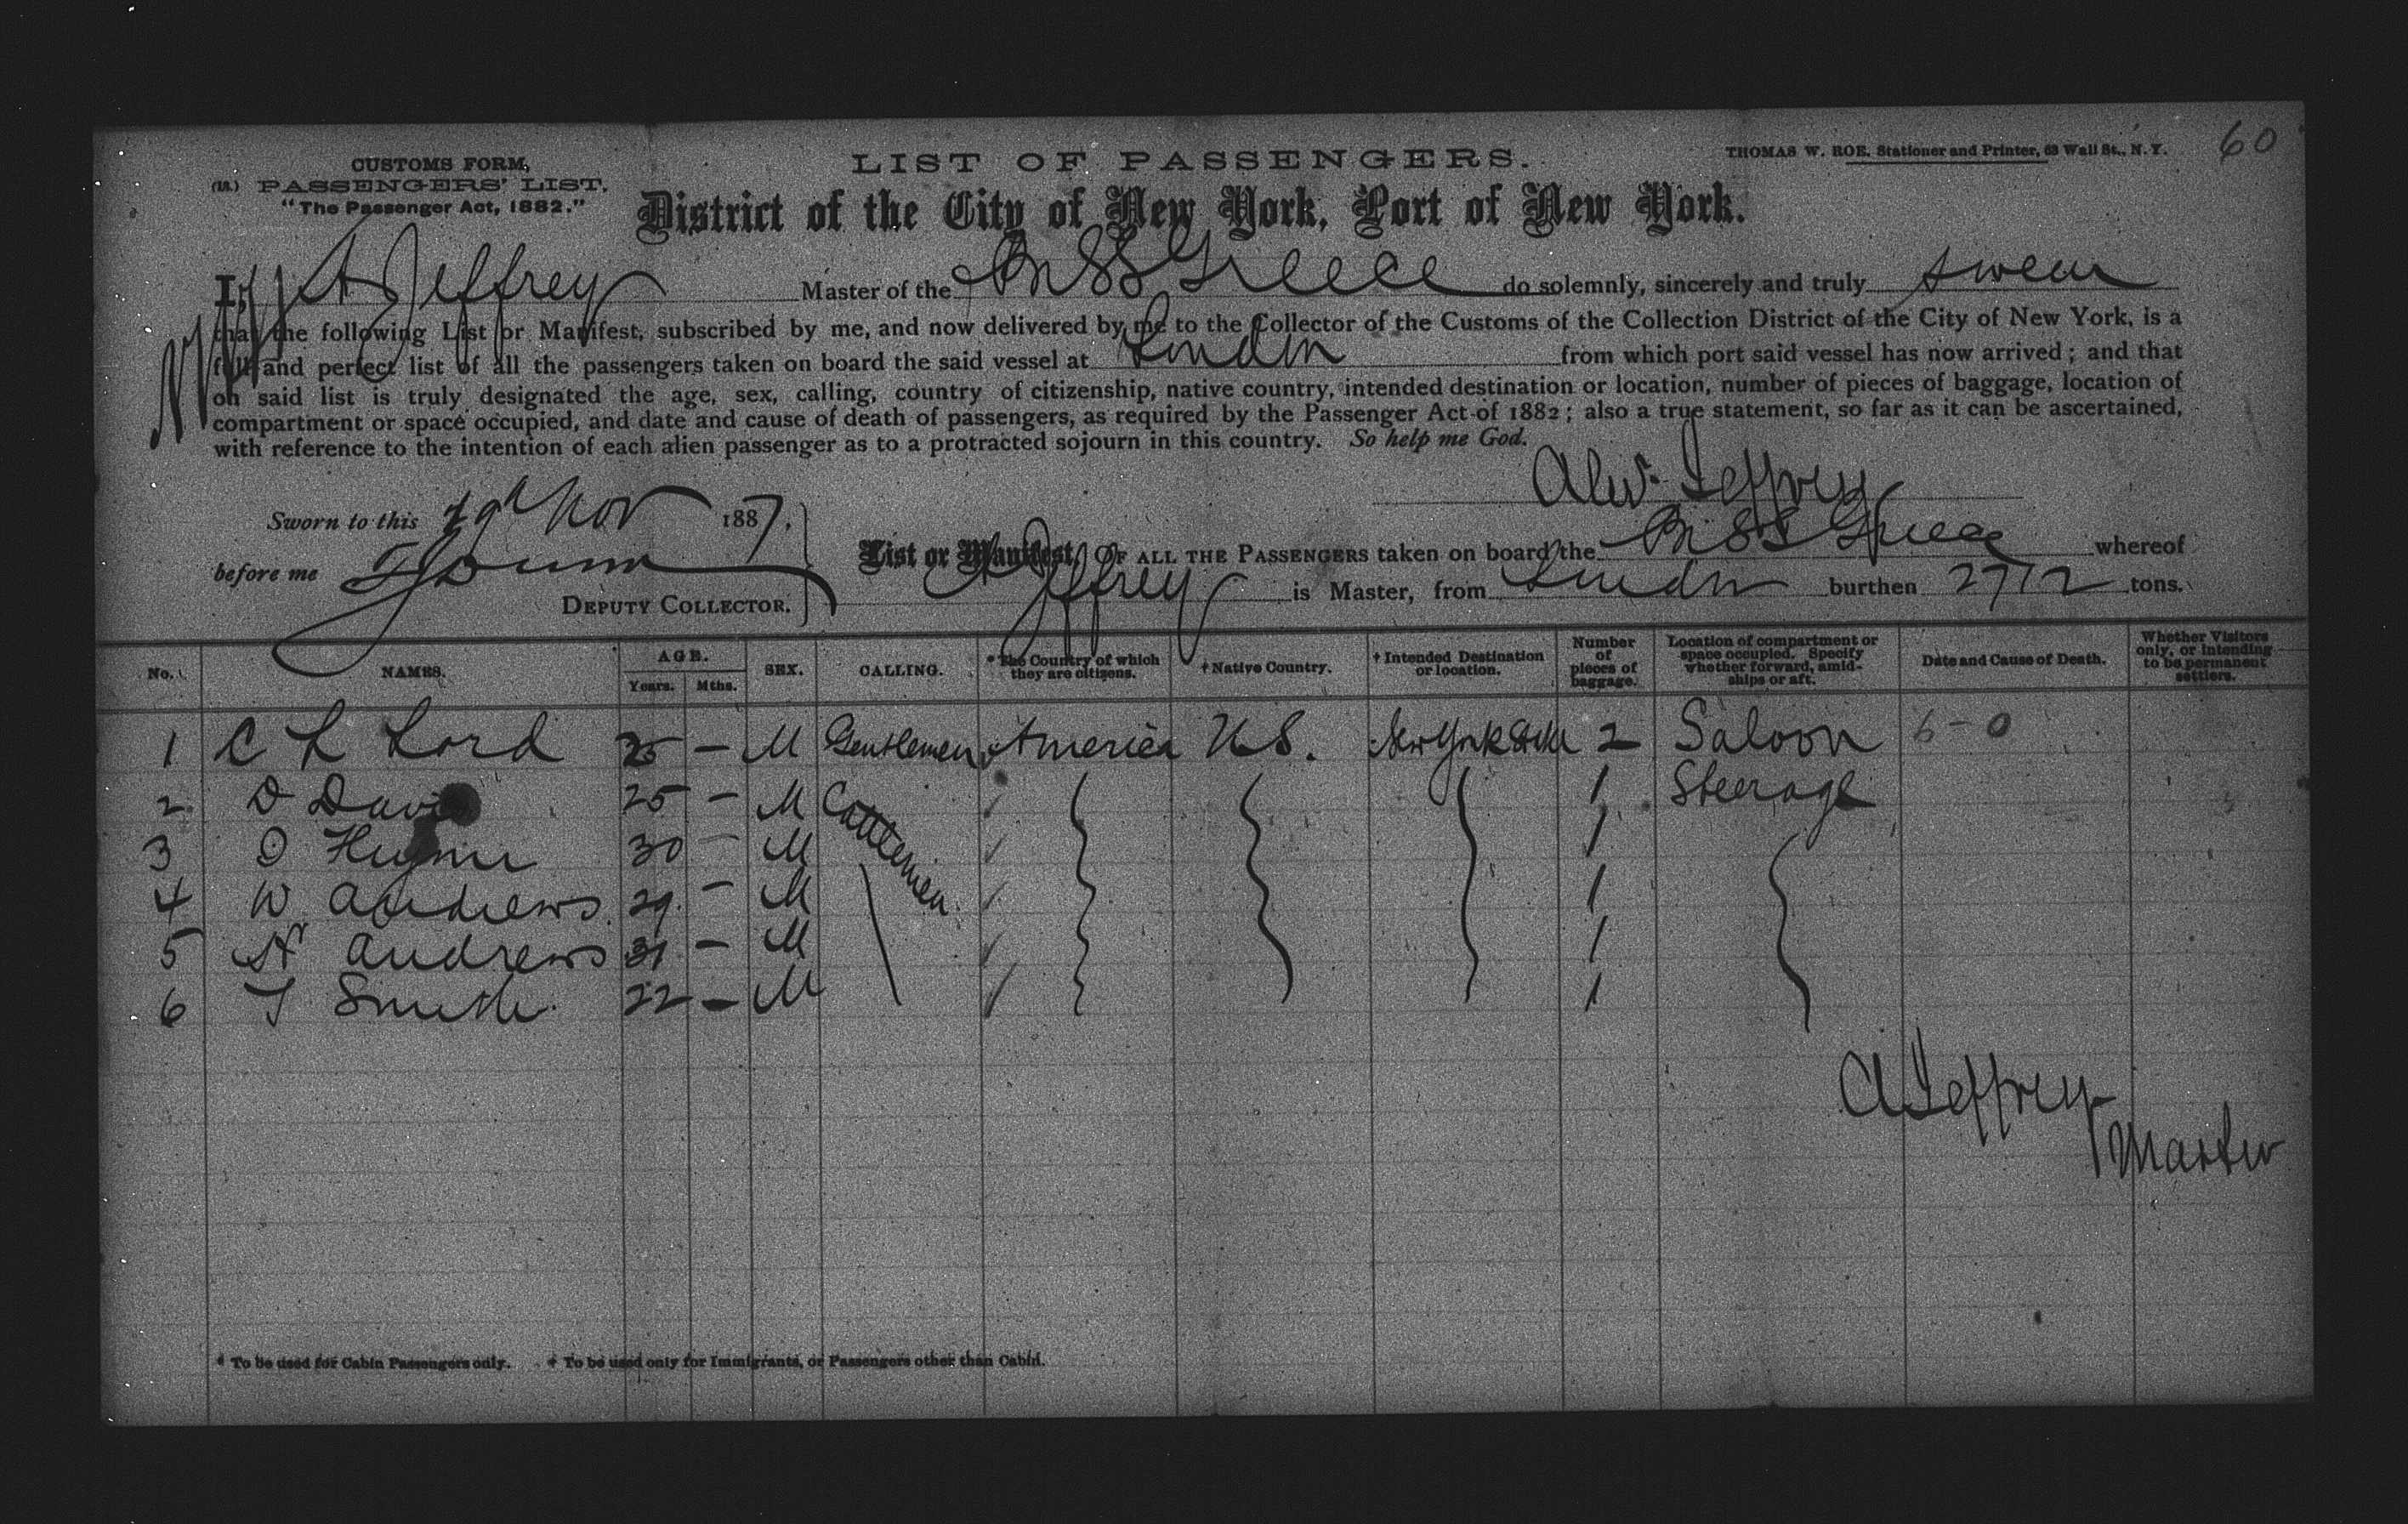 CUSTOMS FORM,
(18.) PASSENGERS' LIST.
"The Passenger Act, 1882."
LIST OF PASSENGERS.
THOMAS W. ROE. Stationer and Printer, 63 Wall St., N.Y.
60
District of the City of New York, Port of New York.
I, A Jeffrey Master of the Br SS Greece do solemnly, sincerely and truly swear
that the following List or Manifest, subscribed by me, and now delivered by me to the Collector of the Customs of the Collection District of the City of New York, is a
full and perfect list of all the passengers taken on board the said vessel at London from which port said vessel has now arrived; and that
on said list is truly designated the age, sex, calling, country of citizenship, native country, intended destination or location, number of pieces of baggage, location of
compartment or space occupied, and date and cause of death of passengers, as required by the Passenger Act of 1882; also a true statement, so far as it can be ascertained,
with reference to the intention of each alien passenger as to a protracted sojourn in this country. So help me God.
Alexr Jeffrey
Sworn to this 19th Nov 1887.
before me
DEPUTY COLLECTOR.
List or Manifest, OF ALL THE PASSENGERS taken on board the Br SS Greece whereof
A Jeffrey is Master, from London burthen 2712 tons.
No. NAMES. AGE. Years. Mths. SEX. CALLING. * The Country of which they are citizens. † Native Country. † Intended Destination or location. Number of pieces of baggage. Location of compartment or space occupied. Specify whether forward, amidships or aft. Date and Cause of Death. Whether Visitors only, or intending to be permanent settlers.
1 C L Lord 35 – M Gentlemen America U.S. New York State 2 Saloon 6-0
2 D Davis 25 – M Cattlemen 1 Steerage
3 30 – M 1
4 W Andrews 29 – M 1
5 H Andrews 31 – M 1
6 T Smith 22 – M 1
A Jeffrey
Master
* To be used for Cabin Passengers only. † To be used only for Immigrants, or Passengers other than Cabin.